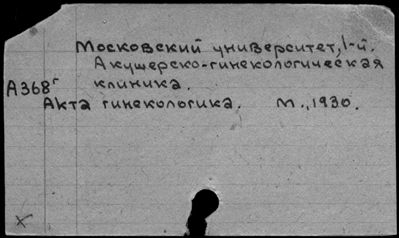 Московский университет, 1-й.
Акушерско-гинекологическая
клиника.
А368г
Akta гинекологика. М., 1930.
x